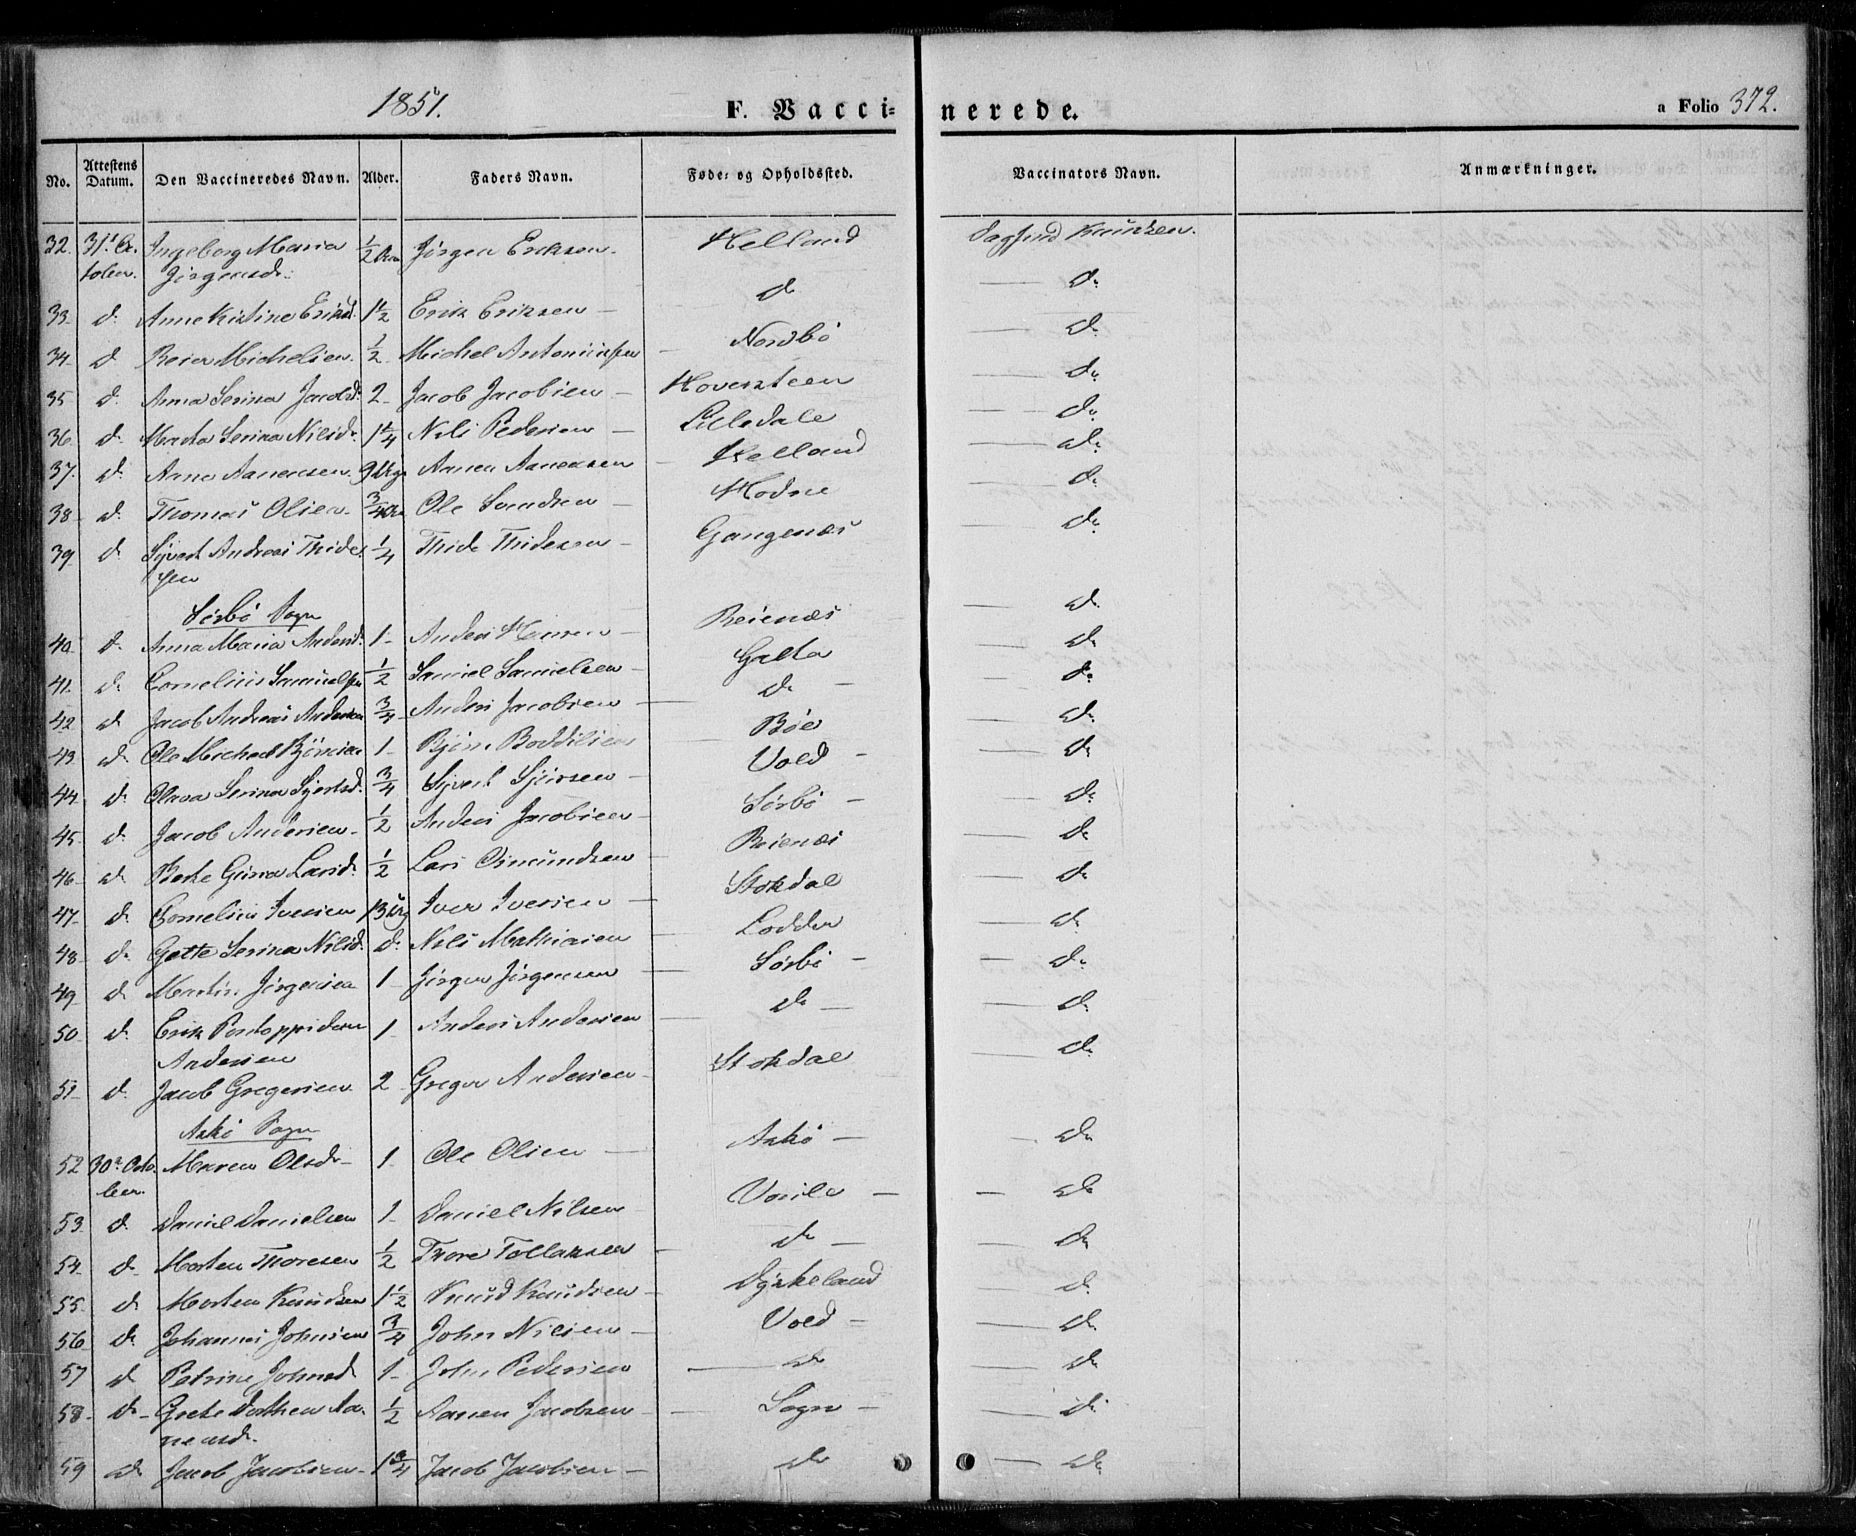 1851.
F. Vaccinerede.
a Folio 372.
No. Attestens Datum. Den Vaccineredes Navn. Alder. Faders Navn. Føde- og Opholdssted. Vaccinators Navn. Anmærkninger.
32. 31t Oc- Ingeborg Maria 1/2 Jörgen Eriksen. Helland Knudsen.
tober. Jörgensdr.
33. d. Anne Kistine Eriksd. 1 1/2 Erik Eriksen — d — d.
34. d. Reier Michelsen. 1/2 Michel — Nordbö — d.
35 d. Anna Serina Jacobsd. 2 Jacob Jacobsen — Hoversteen — d.
36. d. Marta Serina Nilsdr. 1 1/4 Nils Pedersen — Lilledale — d.
37. d. Aanensen. 9 Aanen Aanensen — Helland — d.
38. d. Thomas Olsen. 3/4 Ole Svendsen — Hodne — d.
39. d. Syvert Andreas Thides- 1/4 Thide Thidesen — Gangenæs — d.
sen
Sörbö Sogn
40. d. Anna Maria Andersd. 1 Anders — Reienæs — d.
41. d. Cornelius Samuelsen 1/2 Samuel Samuelsen — Galta — d.
42 d. Jacob Andreas Andersen 3/4 Anders Jacobsen — d. — d.
43. d. Ole Michael Björnsen 1 Björn — Böe — d.
44. d. Olava Serina Syvertsd. 3/4 Syvert Syversen — Vold — d.
45. d. Jacob Andersen 1/2 Anders Jacobsen — Sörbö — d.
46. d. Berte Gurina Larsd. 1/2 Lars Osmundsen — Reienæs — d.
47. d. Cornelius Iversen 13 Iver Iversen — Stokdal — d
48. d. Gette Serina Nilsd. d. Nils Mathiasen — Lodden — d.
49. d. Martin Jörgensen 1 Jörgen Jörgensen — Sörbö — d.
50. d. Erik Pontoppidan 1 Anders Andersen — d — d.
Andersen
51. d. Jacob Gregersen 2 Greger Andersen — Stokdal — d.
Askö Sogn
52. 30te Octo- Maren Olsdr. 1 Ole Olsen — Askö — d.
ber.
53. d. Daniel Danielsen 1 Daniel Nilsen — d
54. d. Morten Thoresen 1/2 Thore Tollaksen — d — d.
55. d. Morten Knudsen 1 1/2 Knud Knudsen — Dyskeland d.
56 d. Johannes Johnsen 3/4 John Nilsen — Vold — d.
57 d Petrine Johnsd. 1 John Pedersen — d — d.
58. d. Grete Dorthea Aa- 1/2 Aanen Jacobsen — Sogn — d.
nensd.
59 d. Jacob Jacobsen 1 3/4 Jacob Jacobsen — d — d.